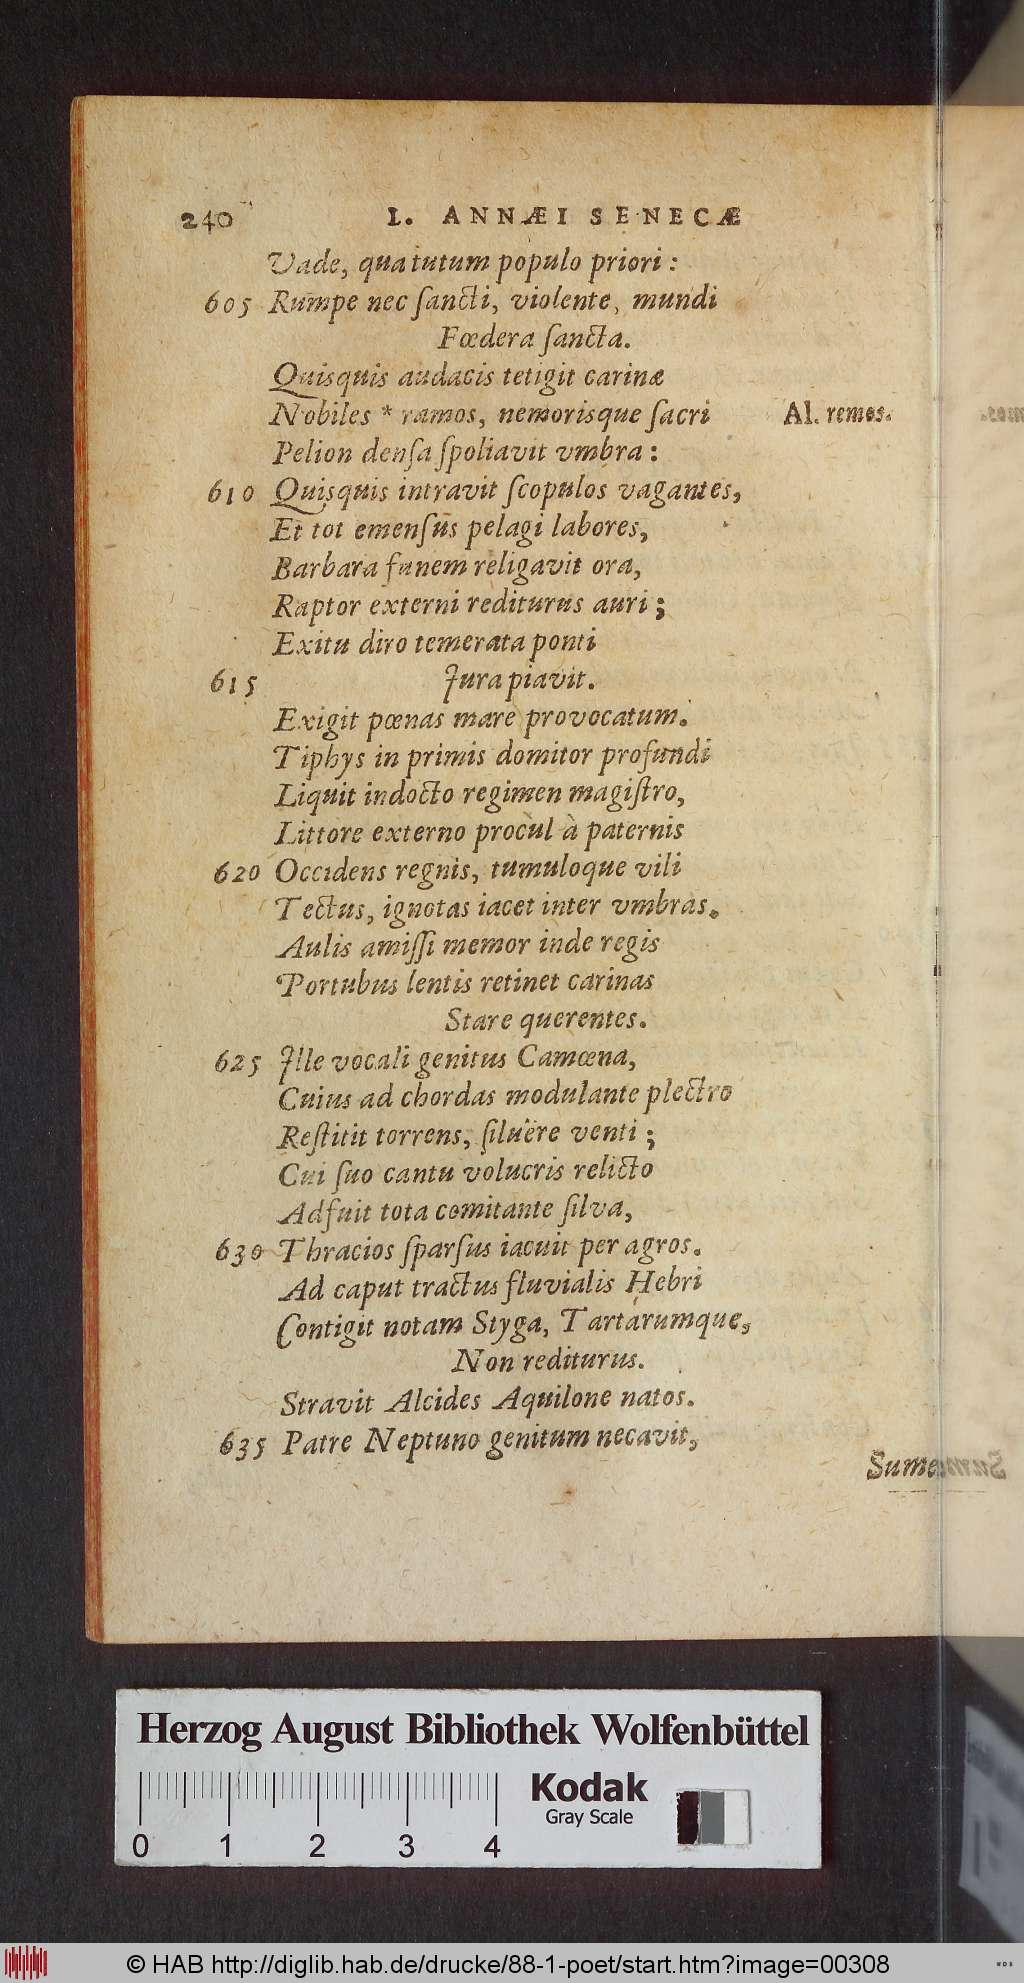 240 L. ANNÆI SENECÆ
Vade, qua tutum populo priori:
605 Rumpe nec ſancti, violente, mundi
Fœdera ſancta.
Quisquis audacis tetigit carinæ
Nobiles * ramos, nemorisque ſacri Al. remos.
Pelion denſa ſpoliavit vmbra:
610 Quisquis intravit ſcopulos vagantes,
Et tot emenſus pelagi labores,
Barbara funem religavit ora,
Raptor externi rediturus auri;
Exitu diro temerata ponti
615 Jura piavit.
Exigit pœnas mare provocatum.
Tiphys in primis domitor profundi
Liquit indocto regimen magiſtro,
Littore externo procul à paternis
620 Occidens regnis, tumuloque vili
Tectus, ignotas iacet inter vmbras.
Aulis amiſſi memor inde regis
Portubus lentis retinet carinas
Stare querentes.
625 Jlle vocali genitus Camœna,
Cuius ad chordas modulante plectro
Reſtitit torrens, ſiluêre venti;
Cui ſuo cantu volucris relicto
Adfuit tota comitante ſilva,
630 Thracios ſparſus iacuit per agros.
Ad caput tractus fluvialis Hebri
Contigit notam Styga, Tartarumque,
Non rediturus.
Stravit Alcides Aquilone natos.
635 Patre Neptuno genitum necavit,
Sume
Herzog August Bibliothek Wolfenbüttel
Kodak
Gray Scale
0 1 2 3 4
© HAB http://diglib.hab.de/drucke/88-1-poet/start.htm?image=00308